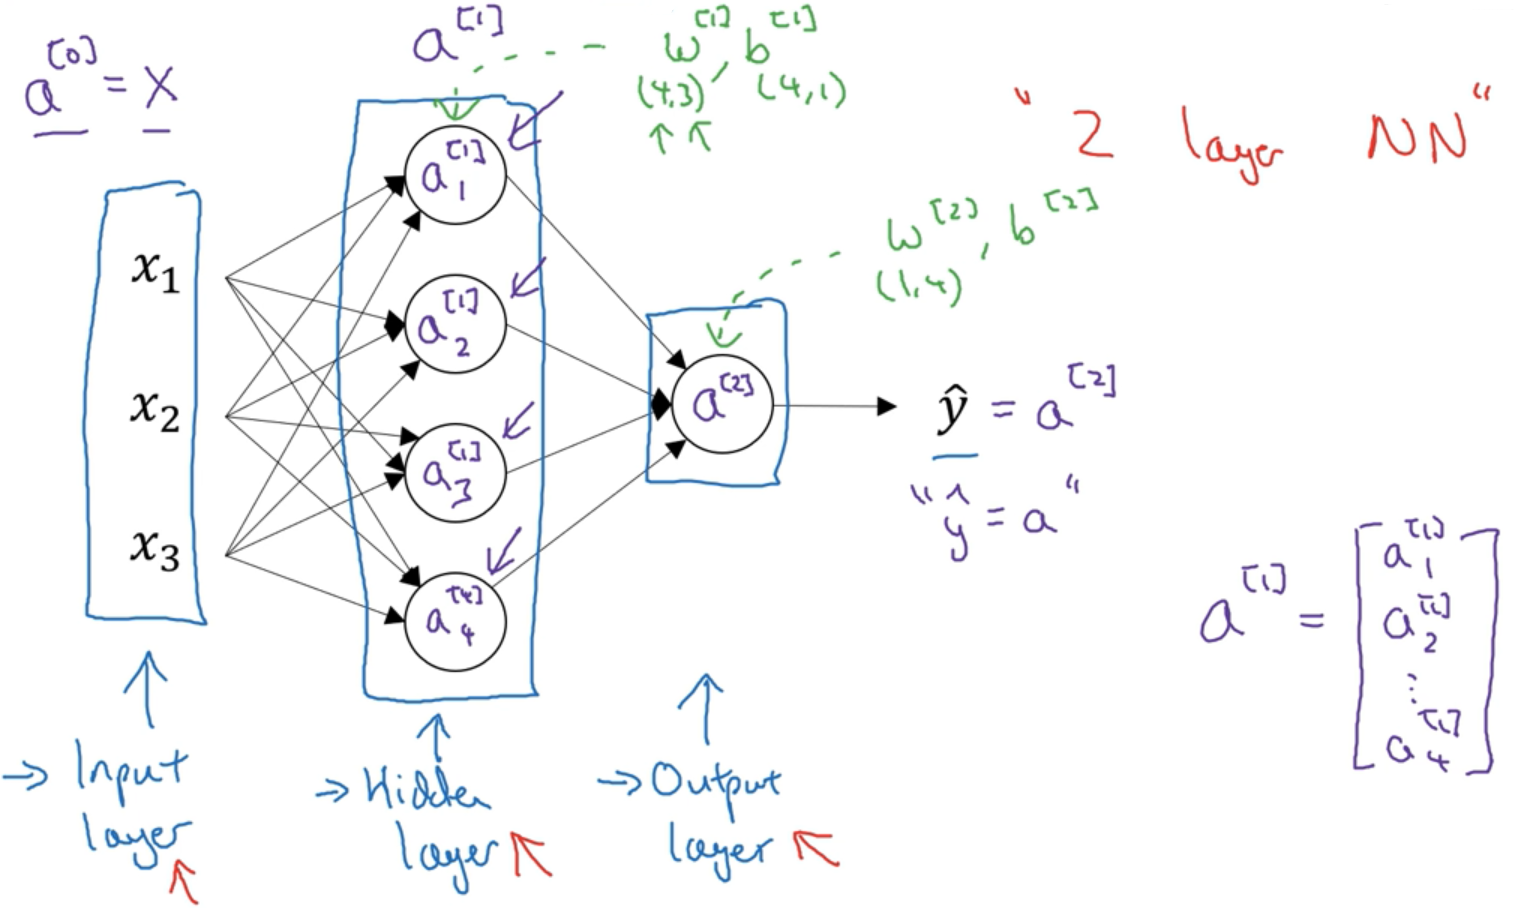 a^[0] = X
a^[1]
w^[1], b^[1]
(4,3) (4,1)
"2 layer NN"
x₁
x₂
x₃
a₁^[1]
a₂^[1]
a₃^[1]
a₄^[4]
w^[2], b^[2]
(1,4)
a^[2]
ŷ = a^[2]
"ŷ = a"
a^[1] = [a₁^[1]
a₂^[1]
⋮
a₄^[1]]
→ Input
layer
→ Hidden
layer
→ Output
layer